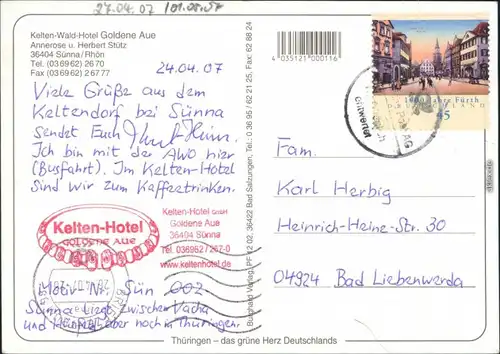 27.04.07 /01.05.07
Kelten-Wald-Hotel Goldene Aue
Annerose u. Herbert Stütz
36404 Sünna/Rhön
Tel. (03 69 62) 26 70
Fax (03 69 62) 2 67 77
24.04.07
Viele Grüße aus dem
Keltendorf bei Sünna
sendet Euch
Ich bin mit der AWO hier
(Busfahrt). Im Kelten-Hotel
sind wir zum Kaffeetrinken.
Kelten-Hotel
GOLDENE AUE
Kelten-Hotel GmbH
Goldene Aue
36404 Sünna
Tel. 036962/267-0
www.keltenhotel.de
Motiv Nr. Sün 002
Sünna liegt zwischen Vacha
und Hünfeld, aber noch in Thüringen.
Burghard Verlag, PF 12 02, 36422 Bad Salzungen, Tel.: 0 36 95 / 62 21 25, Fax: 62 88 24
4 035121 000116
1000 Jahre Fürth
DEUTSCHLAND
45
Fam.
Karl Herbig
Heinrich-Heine-Str. 30
04924 Bad Liebenwerda
Thüringen – das grüne Herz Deutschlands